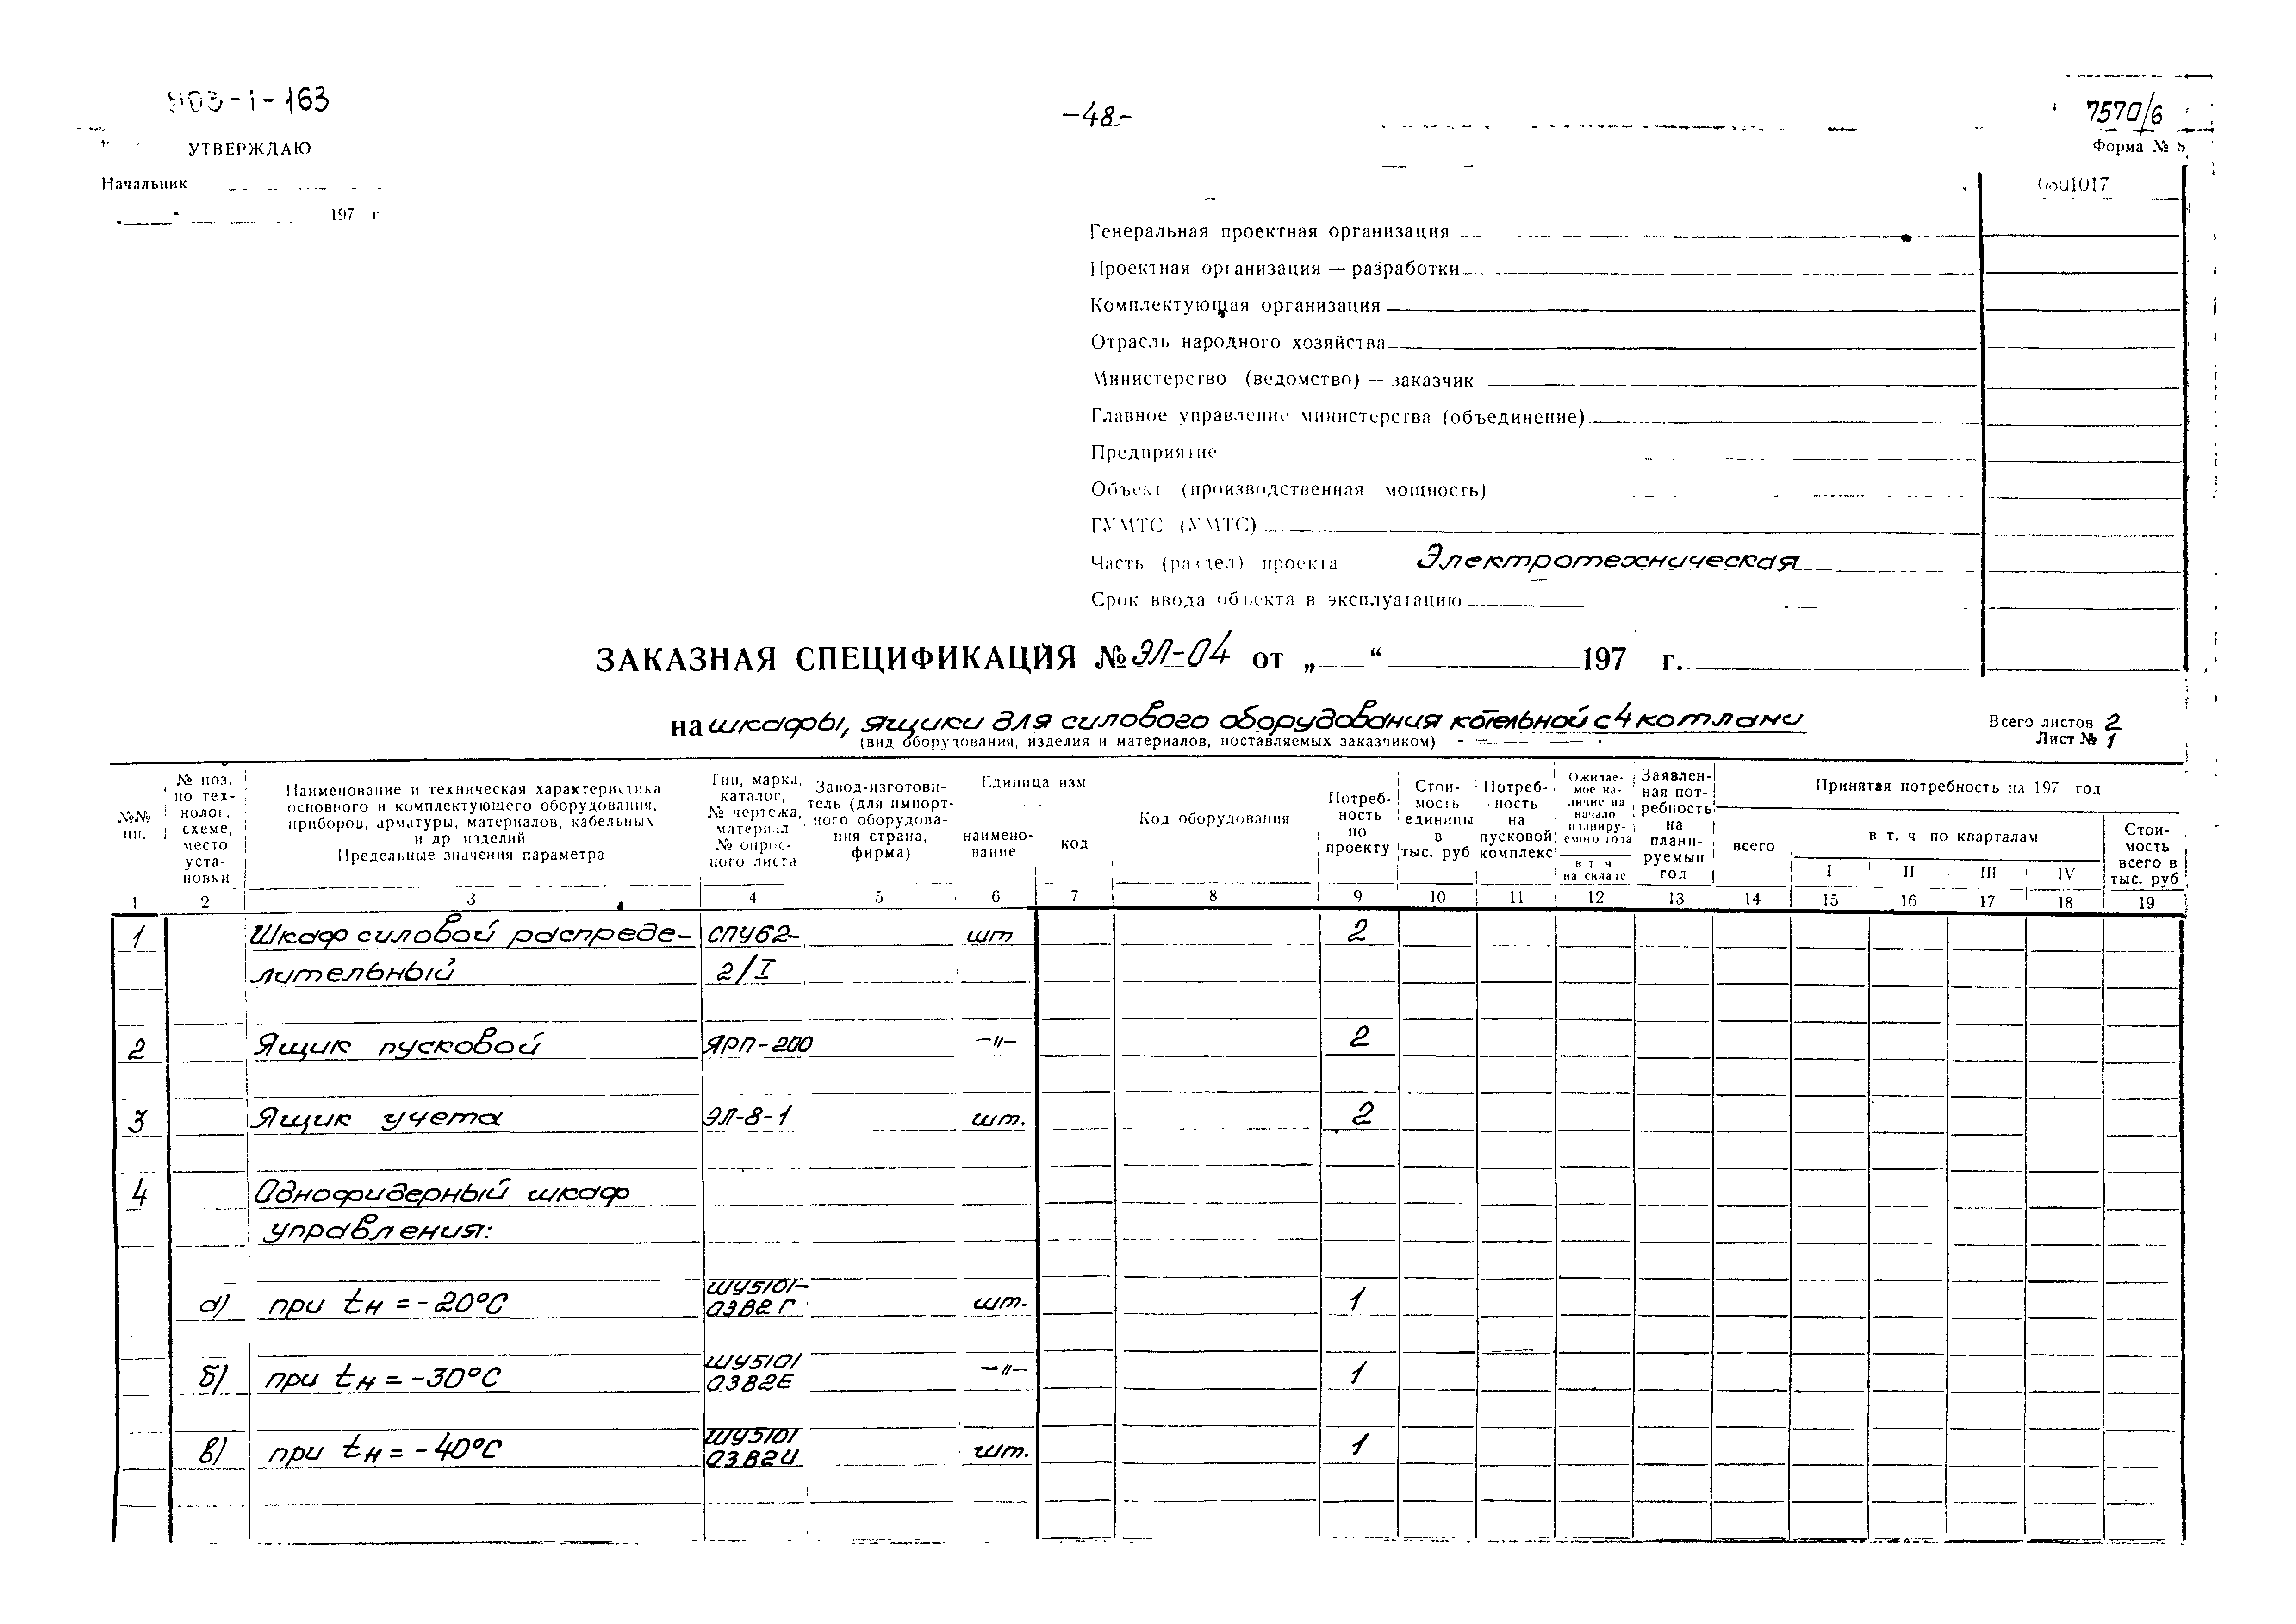 903-1-163
-48-
7570/6
УТВЕРЖДАЮ
Форма № 8
Начальник
197 г
Генеральная проектная организация
Проектная организация — разработки
Комплектующая организация
Отрасль народного хозяйства
Министерство (ведомство) — заказчик
Главное управление министерства (объединение)
Предприятие
Объект (производственная мощность)
ГУМТС (УМТС)
Часть (раздел) проекта Электротехническая
Срок ввода объекта в эксплуатацию
ЗАКАЗНАЯ СПЕЦИФИКАЦИЯ № ЭЛ-04 от „ “ 197 г.
на шкафы, ящики для силового оборудования котельной с 4 котлами
(вид оборудования, изделия и материалов, поставляемых заказчиком)
Всего листов 2
Лист № 1
№№ пп.
№ поз. по технолог. схеме, место установки
Наименование и техническая характеристика
основного и комплектующего оборудования,
приборов, арматуры, материалов, кабельных
и др изделий
Предельные значения параметра
Тип, марка, каталог, № чертежа, материал № опросного листа
Завод-изготовитель (для импортного оборудования страна, фирма)
Единица изм
наименование
код
Код оборудования
Потребность по проекту
Стоимость единицы в тыс. руб
Потребность на пусковой комплекс
Ожидаемое наличие на начало планируемого года
в т ч на складе
Заявленная потребность на планируемый год
Принятая потребность на 197 год
всего
в т. ч по кварталам
I II III IV
Стоимость всего в тыс. руб
1 2 3 4 5 6 7 8 9 10 11 12 13 14 15 16 17 18 19
1 Шкаф силовой распреде- СПУ62- шт 2
лительный 2/I
2 Ящик пусковой ЯРП-200 -"- 2
3 Ящик учета ЭЛ-8-1 шт. 2
4 Однофидерный шкаф
управления:
ШУ5101-
а) при tн = -20°С 03В2Г шт. 1
ШУ5101
б) при tн = -30°С 03В2Е -"- 1
ШУ5101
в) при tн = -40°С 03В2И шт. 1